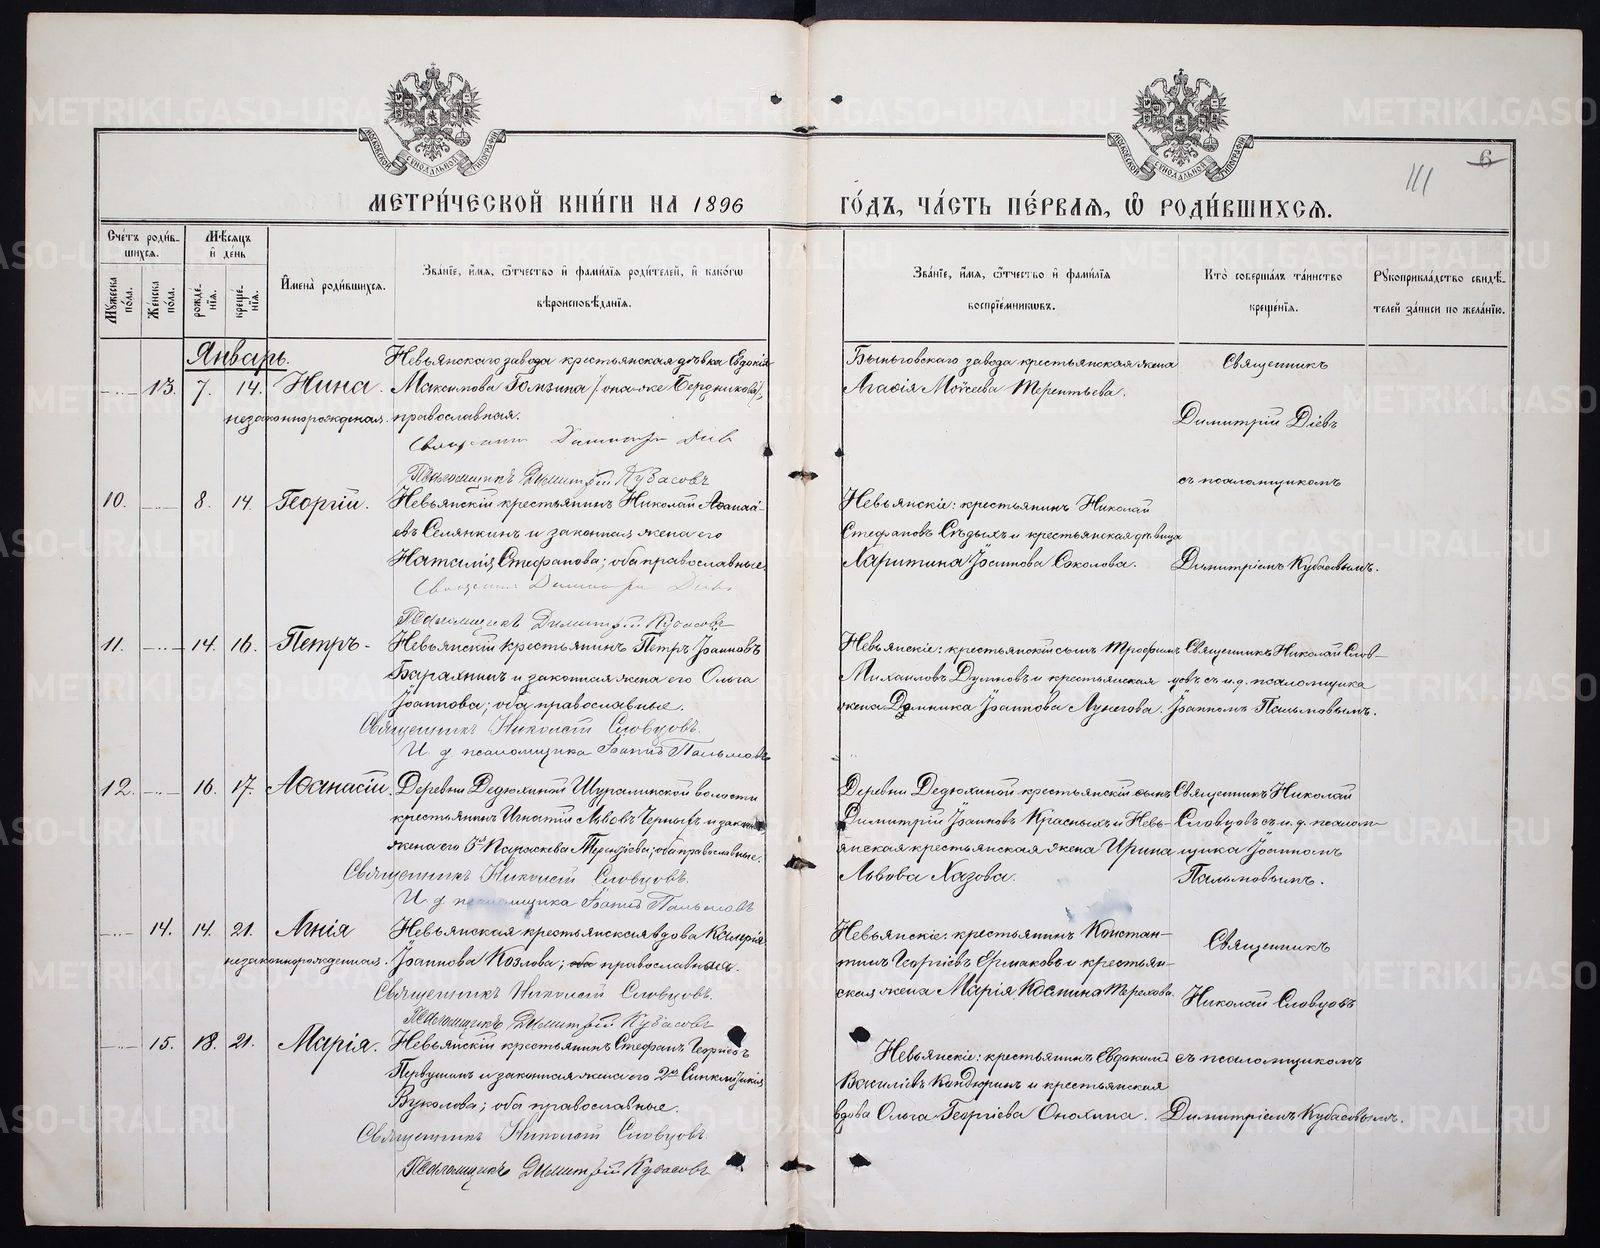 МЕТРИ́ЧЕСКОЙ КНИ́ГИ НА 1896 ГО́ДЪ, ЧА́СТЬ ПЕ́РВАЯ, Ѿ РОДИ́ВШИХСЯ.
111 6
Сче́тъ роди́вшихся.
Мѣ́сяцъ и де́нь
Мꙋ́жеска по́ла.
Же́нска по́ла.
рожде́нїя.
креще́нїя.
И҆мена̀ роди́вшихся.
Зва́нїе, и҆́мя, ѻ҆́тчество и҆ фами́лїя роди́телей, и҆ како́гѡ
вѣроисповѣ́данїя.
Зва́нїе, и҆́мя, ѻ҆́тчество и҆ фами́лїя
воспрїе́мникѡвъ.
Кто̀ соверша́лъ та́инство
креще́нїя.
Рꙋкоприкла́дство свидѣ́телей за́писи по жела́нїю.
Январь.
13. 7. 14. Нина.
незаконнорожденая.
Невьянскаго завода крестьянская дѣвка Евдокія
Максимова Гомзина /она-же Бердникова/,
православная.
Священникъ Димитрій Діевъ
Псаломщикъ Димитрій Кубасовъ
Быньговскаго завода крестьянская жена
Агафія Моѵсеева Терентьева.
Священникъ
Димитрій Діевъ
съ псаломщикомъ
Димитріемъ Кубасовымъ.
10. 8. 14. Георгій.
Невьянскій крестьянинъ Николай Аѳанасі-
евъ Селянкинъ и законная жена его
Наталія Стефанова; оба православные.
Священникъ Димитрій Діевъ
Псаломщикъ Димитрій Кубасовъ
Невьянскіе: крестьянинъ Николай
Стефановъ Сѣдыхъ и крестьянская дѣвица
Харитина Іоаннова Соколова.
11. 14. 16. Петръ.
Невьянскій крестьянинъ Петръ Іоанновъ
Барахнинъ и законная жена его Ольга
Іоаннова; оба православные.
Священникъ Николай Словцовъ.
И. д. псаломщика Іоаннъ Пальмовъ
Невьянскіе: крестьянскій сынъ Трофимъ
Михаиловъ Думновъ и крестьянская
жена Домника Іоаннова Лунегова.
Священникъ Николай Слов-
цовъ съ и. д. псаломщика
Іоанномъ Пальмовымъ.
12. 16. 17. Аѳанасій.
Деревни Дедюхиной Шуралинской волости
крестьянинъ Игнатій Львовъ Черныхъ и законная
жена его Параскева Терентіева; оба православные.
Священникъ Николай Словцовъ.
И. д. псаломщика Іоаннъ Пальмовъ
Деревни Дедюхиной крестьянскій сынъ
Димитрій Іоанновъ Красныхъ и Невь-
янская крестьянская жена Ирина
Львова Хазова.
Священникъ Николай
Словцовъ съ и. д. псалом-
щика Іоанномъ
Пальмовымъ.
14. 14. 21. Агнія
незаконнорожденная.
Невьянская крестьянская вдова Валерія
Іоаннова Козлова; православная.
Священникъ Николай Словцовъ.
Псаломщикъ Димитрій Кубасовъ
Невьянскіе: крестьянинъ Констан-
тинъ Георгіевъ Ермаковъ и крестьян-
ская жена Марія Космина Терехова.
Священникъ
Николай Словцовъ
съ псаломщикомъ
Димитріемъ Кубасовымъ.
15. 18. 21. Марія.
Невьянскій крестьянинъ Стефанъ Георгіевъ
Первушинъ и законная жена его Синклитикія
Вуколова; оба православные.
Священникъ Николай Словцовъ.
Псаломщикъ Димитрій Кубасовъ
Невьянскіе: крестьянинъ Евдокимъ
Василіевъ Кондюринъ и крестьянская
вдова Ольга Георгіева Онохина.